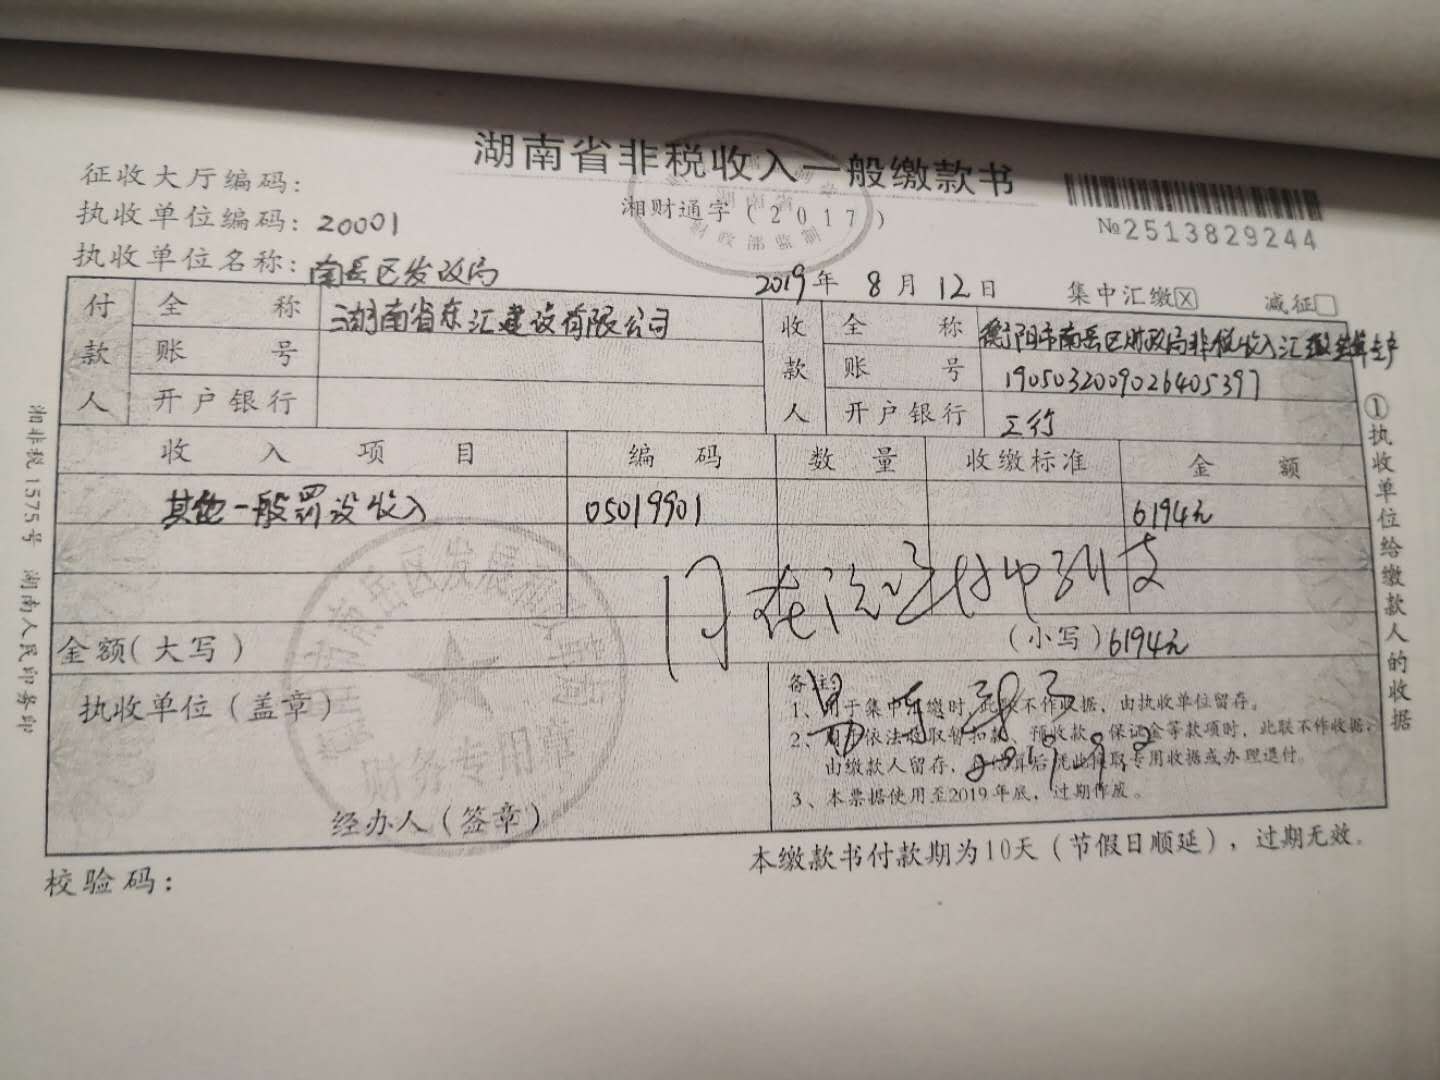 湖南省非税收入一般缴款书
征收大厅编码:
湘财通字(2017)
№2513829244
执收单位编码:20001
执收单位名称:南岳区发改局
2019年 8月 12日 集中汇缴☒ 减征□
付款人 全称 湖南省东汇建设有限公司 收款人 全称 衡阳市南岳区财政局非税收入汇缴结算专户
账号 账号 1905032009026405397
开户银行 开户银行 工行
收入项目 编码 数量 收缴标准 金额
其他一般罚没收入 05019901 6194元
金额(大写) (小写)6194元
执收单位(盖章)
财务专用章
经办人(签章)
备注:
1、用于集中汇缴时,此联不作收据,由执收单位留存。
2、用于依法收取暂扣款、预收款、保证金等款项时,此联不作收据,
由缴款人留存,待结算后凭此换取专用收据或办理退付。
3、本票据使用至2019年底,过期作废。
本缴款书付款期为10天(节假日顺延),过期无效。
校验码:
①执收单位给缴款人的收据
湘非税1575号 湖南人民印务印